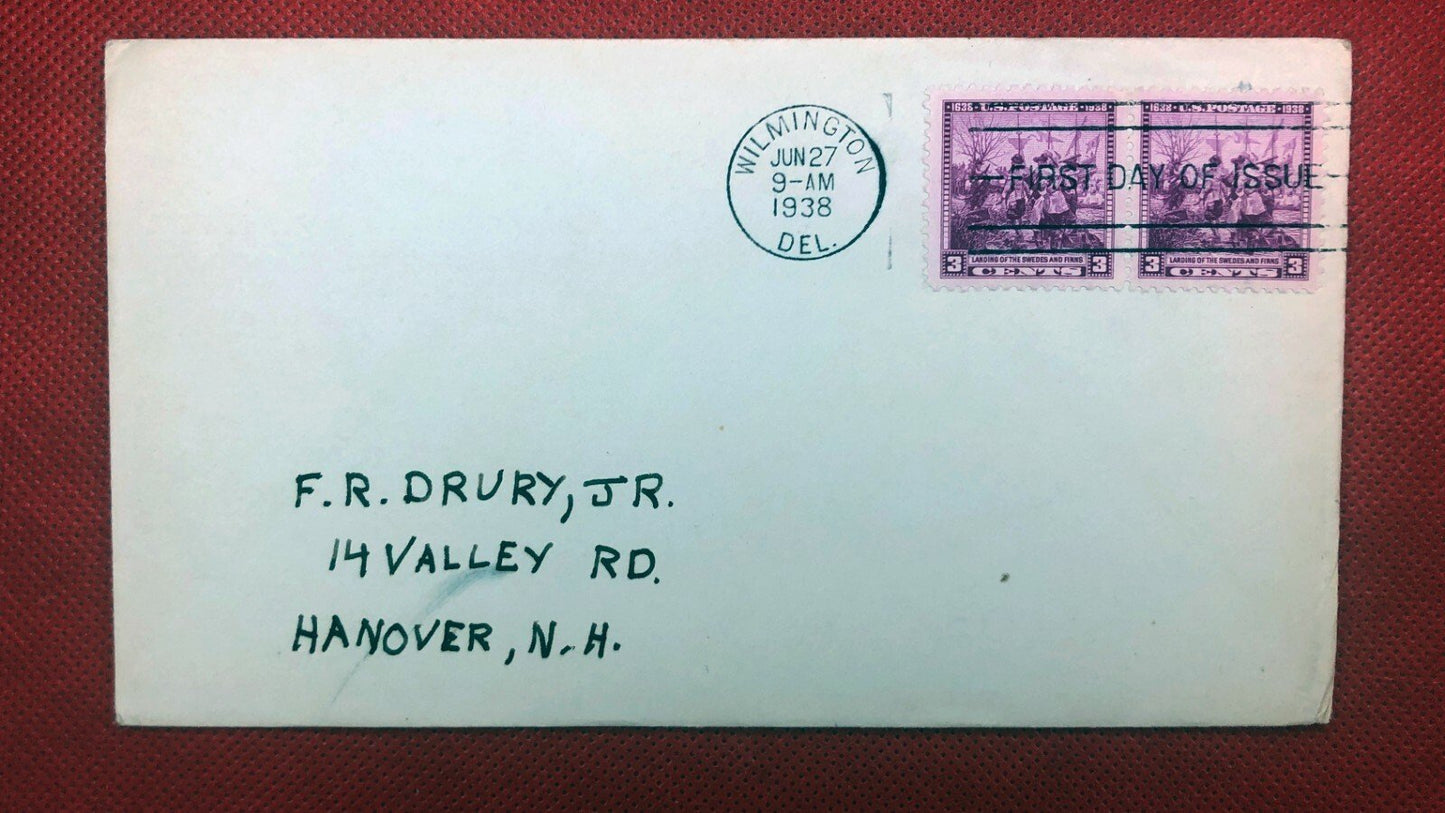 WILMINGTON
JUN 27
9-AM
1938
DEL.
1638 U.S. POSTAGE 1938
1638 U.S. POSTAGE 1938
FIRST DAY OF ISSUE
LANDING OF THE SWEDES AND FINNS
3 CENTS 3
LANDING OF THE SWEDES AND FINNS
3 CENTS 3
F. R. DRURY, JR.
14 VALLEY RD.
HANOVER, N.H.